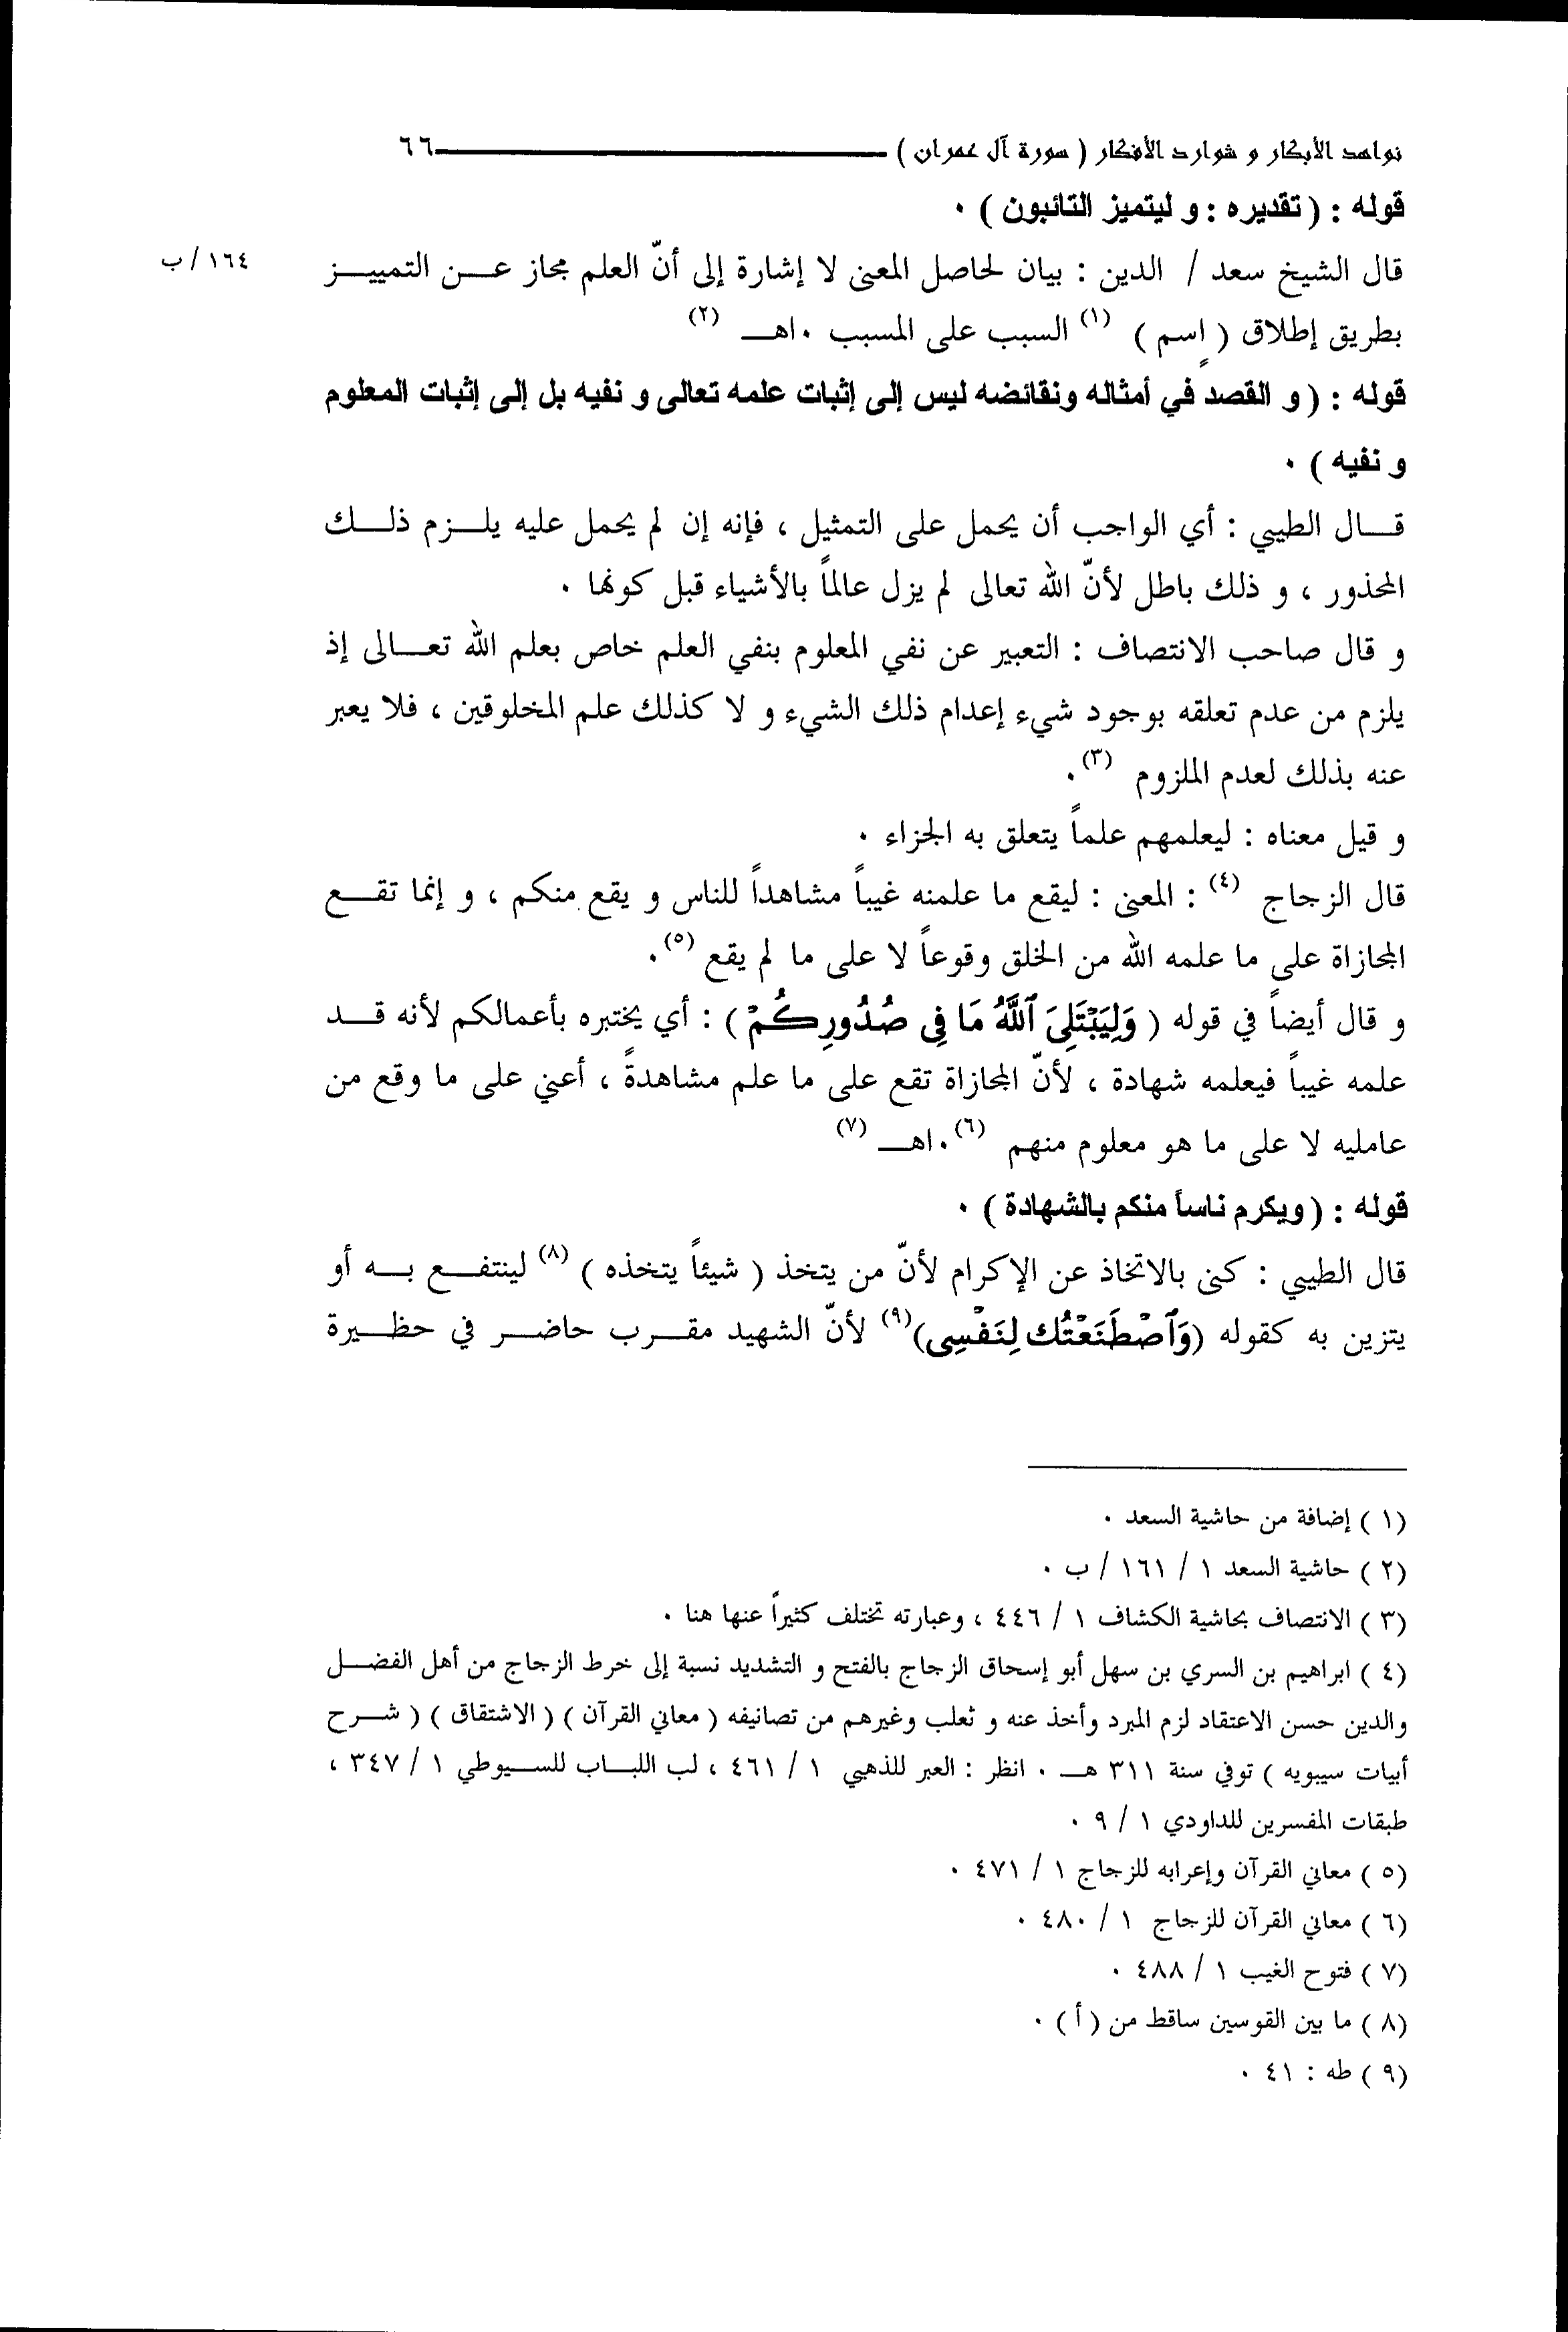 نواهد الأبكار و شوارد الأفكار ( سورة آل عمران ) ٦٦
قوله : ( تقديره : و ليتميز التائبون ) ٠
قال الشيخ سعد / الدين : بيان لحاصل المعنى لا إشارة إلى أنّ العلم مجاز عـــن التمييـــز
١٦٤ / ب
بطريق إطلاق ( إسم ) (١) السبب على المسبب ٠اهـــ (٢)
قوله : ( و القصد في أمثاله ونقائضه ليس إلى إثبات علمه تعالى و نفيه بل إلى إثبات المعلوم
و نفيه ) ٠
قـــال الطيبي : أي الواجب أن يحمل على التمثيل ، فإنه إن لم يحمل عليه يلـــزم ذلـــك
المحذور ، و ذلك باطل لأنّ الله تعالى لم يزل عالماً بالأشياء قبل كونها ٠
و قال صاحب الانتصاف : التعبير عن نفي المعلوم بنفي العلم خاص بعلم الله تعـــالى إذ
يلزم من عدم تعلقه بوجود شيء إعدام ذلك الشيء و لا كذلك علم المخلوقين ، فلا يعبر
عنه بذلك لعدم الملزوم (٣)٠
و قيل معناه : ليعلمهم علماً يتعلق به الجزاء ٠
قال الزجاج (٤) : المعنى : ليقع ما علمنه غيباً مشاهداً للناس و يقع منكم ، و إنما تقـــع
المجازاة على ما علمه الله من الخلق وقوعاً لا على ما لم يقع (٥)٠
و قال أيضاً في قوله ( وَلِيَبْتَلِىَ ٱللَّهُ مَا فِى صُدُورِكُمْ ) : أي يختبره بأعمالكم لأنه قـــد
علمه غيباً فيعلمه شهادة ، لأنّ المجازاة تقع على ما علم مشاهدةً ، أعني على ما وقع من
عامليه لا على ما هو معلوم منهم (٦)٠اهـــ (٧)
قوله : ( ويكرم ناساً منكم بالشهادة ) ٠
قال الطيبي : كنى بالاتخاذ عن الإكرام لأنّ من يتخذ ( شيئاً يتخذه ) (٨) لينتفـــع بـــه أو
يتزين به كقوله (وَٱصْطَنَعْتُكَ لِنَفْسِى)(٩) لأنّ الشهيد مقـــرب حاضـــر في حظـــيرة
(١ ) إضافة من حاشية السعد ٠
(٢ ) حاشية السعد ١ / ١٦١ / ب ٠
(٣ ) الانتصاف بحاشية الكشاف ١ / ٤٤٦ ، وعبارته تختلف كثيراً عنها هنا ٠
(٤ ) ابراهيم بن السري بن سهل أبو إسحاق الزجاج بالفتح و التشديد نسبة إلى خرط الزجاج من أهل الفضـــل
والدين حسن الاعتقاد لزم المبرد وأخذ عنه و ثعلب وغيرهم من تصانيفه ( معاني القرآن ) ( الاشتقاق ) ( شـــرح
أبيات سيبويه ) توفي سنة ٣١١ هـــ ٠ انظر : العبر للذهبي ١ / ٤٦١ ، لب اللبـــاب للســـيوطي ١ / ٣٤٧ ،
طبقات المفسرين للداودي ١ / ٩ ٠
(٥ ) معاني القرآن وإعرابه للزجاج ١ / ٤٧١ ٠
(٦ ) معاني القرآن للزجاج ١ / ٤٨٠ ٠
(٧ ) فتوح الغيب ١ / ٤٨٨ ٠
(٨ ) ما بين القوسين ساقط من ( أ ) ٠
(٩ ) طه : ٤١ ٠